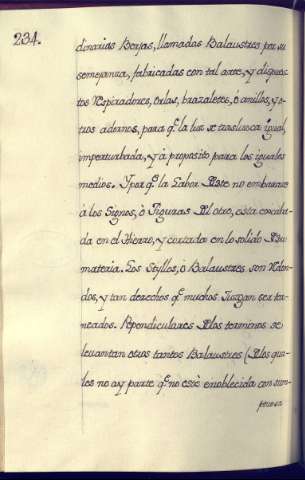 234.
dinarias Berjas, llamadas Balaustres por su
semejanza, fabricadas con tal arte, y dispues
tos Respiradores, Orlas, brazaletes, ò anillos, y o-
tros adornos, para q.e la luz se trasluzca igual,
imperturbada, y à proposito para los iguales
medios. Y por q.e la Labor no embaraze
à los Signos, ò Figuras del otro, està excabà-
da en el Hierro, y cortada en lo solido
materia. Los Styllos, ò Balaustres son redon
dos, y tan derechos q.e muchos Juzgan ser tor-
neados. Perpendiculares à los terminos se
levantan otros tantos Balaustres (de los qua-
les no ay parte q.e no estè enoblecida con